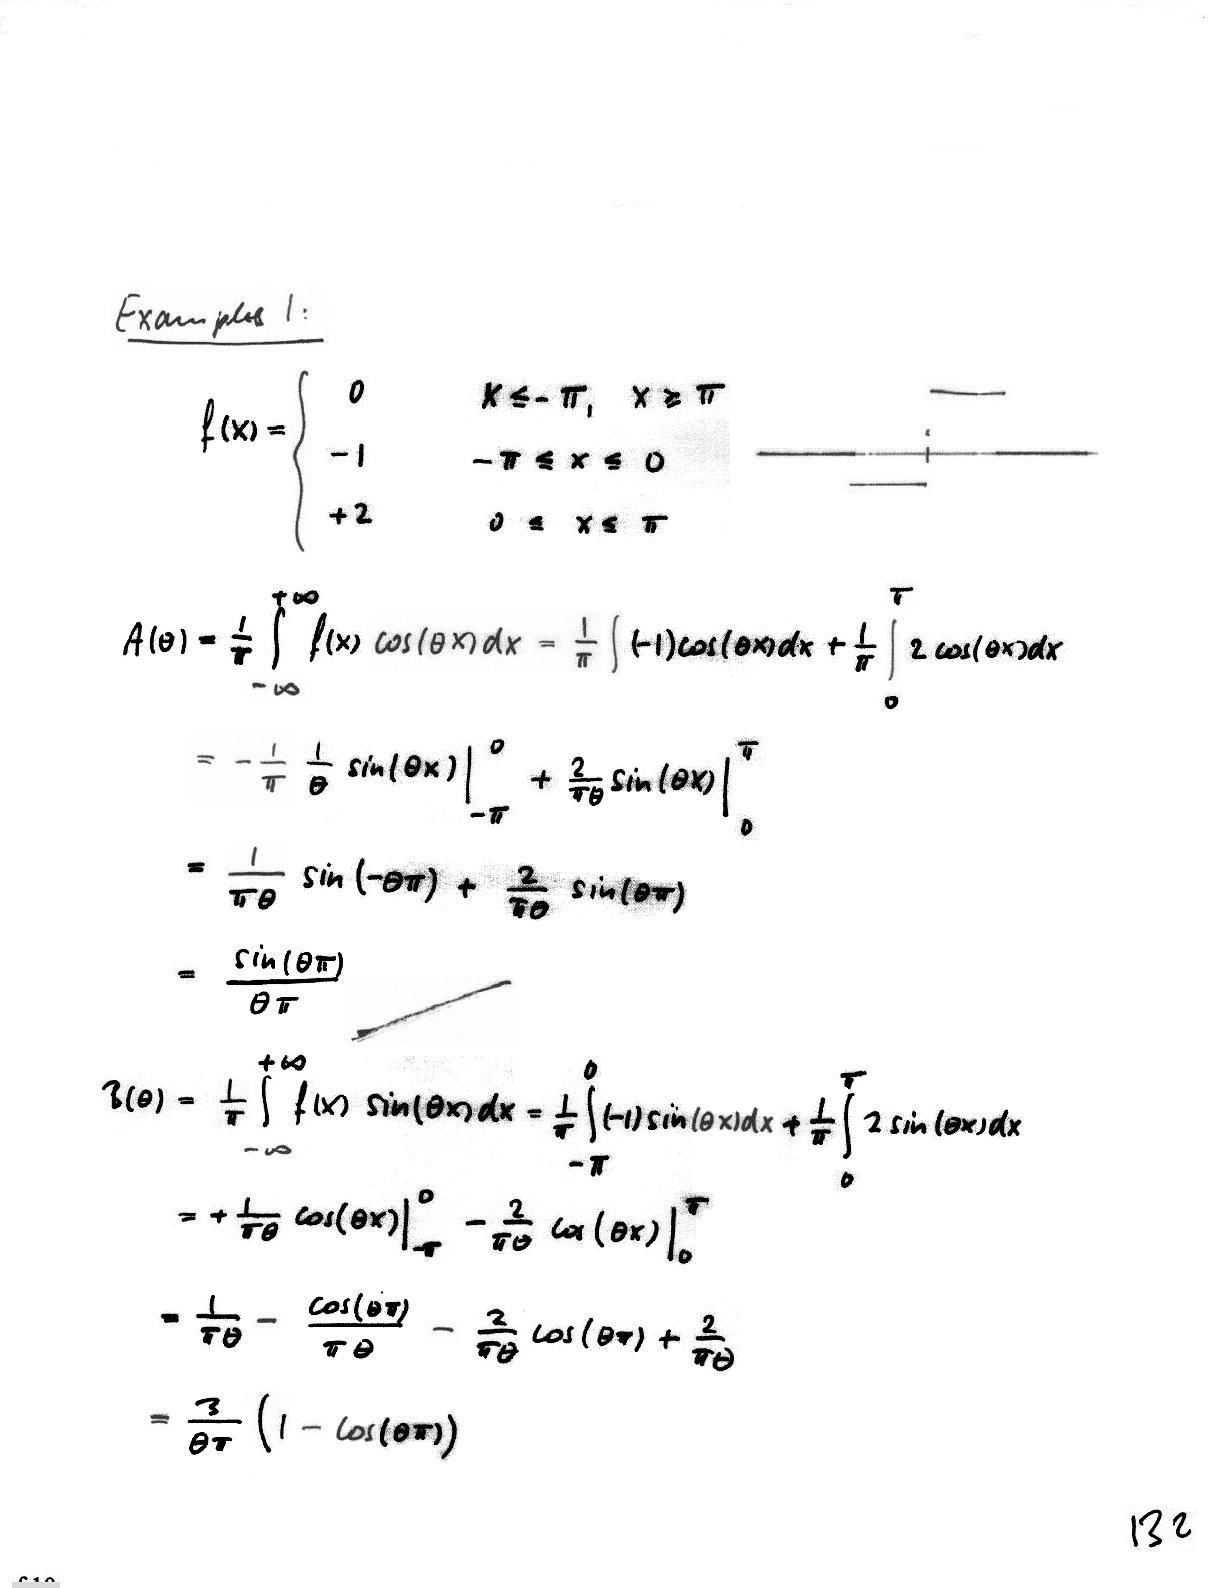 Examples 1:
f(x) = { 0 x ≤ -π, x ≥ π
-1 -π ≤ x ≤ 0
+2 0 ≤ x ≤ π
A(θ) = 1/π ∫_{-∞}^{+∞} f(x) cos(θx)dx = 1/π ∫ (-1)cos(θx)dx + 1/π ∫_0^π 2 cos(θx)dx
= - 1/π 1/θ sin(θx) |_{-π}^0 + 2/πθ sin(θx) |_0^π
= 1/πθ sin(-θπ) + 2/πθ sin(θπ)
= sin(θπ)/θπ
B(θ) = 1/π ∫_{-∞}^{+∞} f(x) sin(θx)dx = 1/π ∫_{-π}^0 (-1)sin(θx)dx + 1/π ∫_0^π 2 sin(θx)dx
= + 1/πθ cos(θx) |_{-π}^0 - 2/πθ cos(θx) |_0^π
= 1/πθ - cos(θπ)/πθ - 2/πθ cos(θπ) + 2/πθ
= 3/θπ (1 - cos(θπ))
132